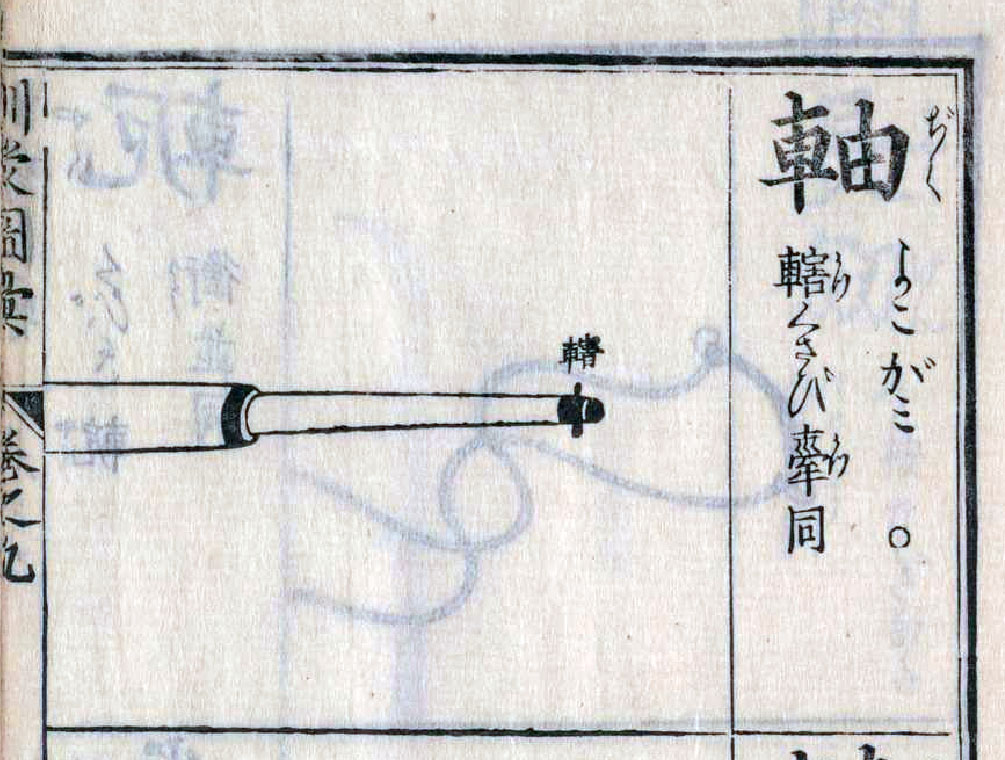 軸
ぢく
よこがミ 。
轄くさび 舝同
かつ
かつ
轄
訓蒙圖彙 巻之九